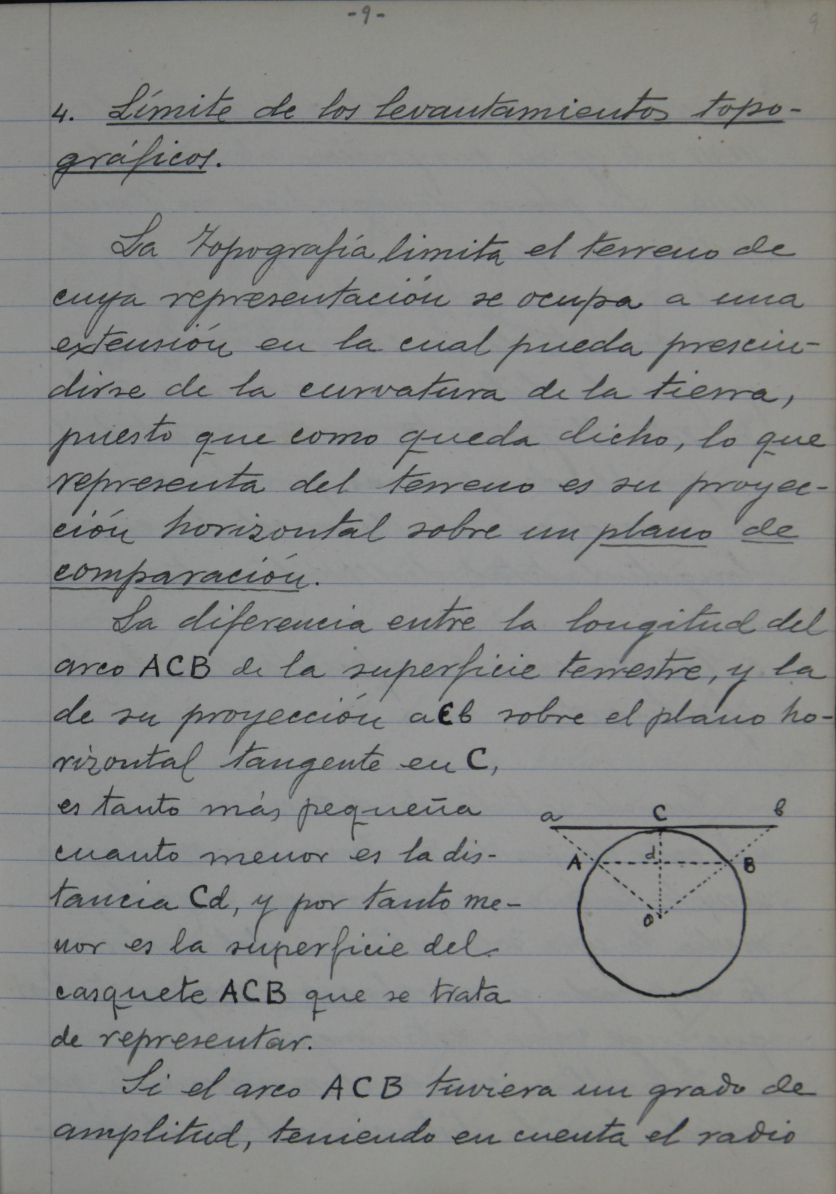 -9-
9
4. Límite de los levantamientos topo-
gráficos.
La Topografía limita el terreno de
cuya representación se ocupa a una
extensión en la cual pueda prescin-
dirse de la curvatura de la tierra,
puesto que como queda dicho, lo que
representa del terreno es su proyec-
ción horizontal sobre un plano de
comparación.
La diferencia entre la longitud del
arco ACB de la superficie terrestre, y la
de su proyección aCb sobre el plano ho-
rizontal tangente en C,
es tanto más pequeña
cuanto menor es la dis-
tancia Cd, y por tanto me-
nor es la superficie del
casquete ACB que se trata
de representar.
a C b
A d B
O
Si el arco ACB tuviera un grado de
amplitud, teniendo en cuenta el radio